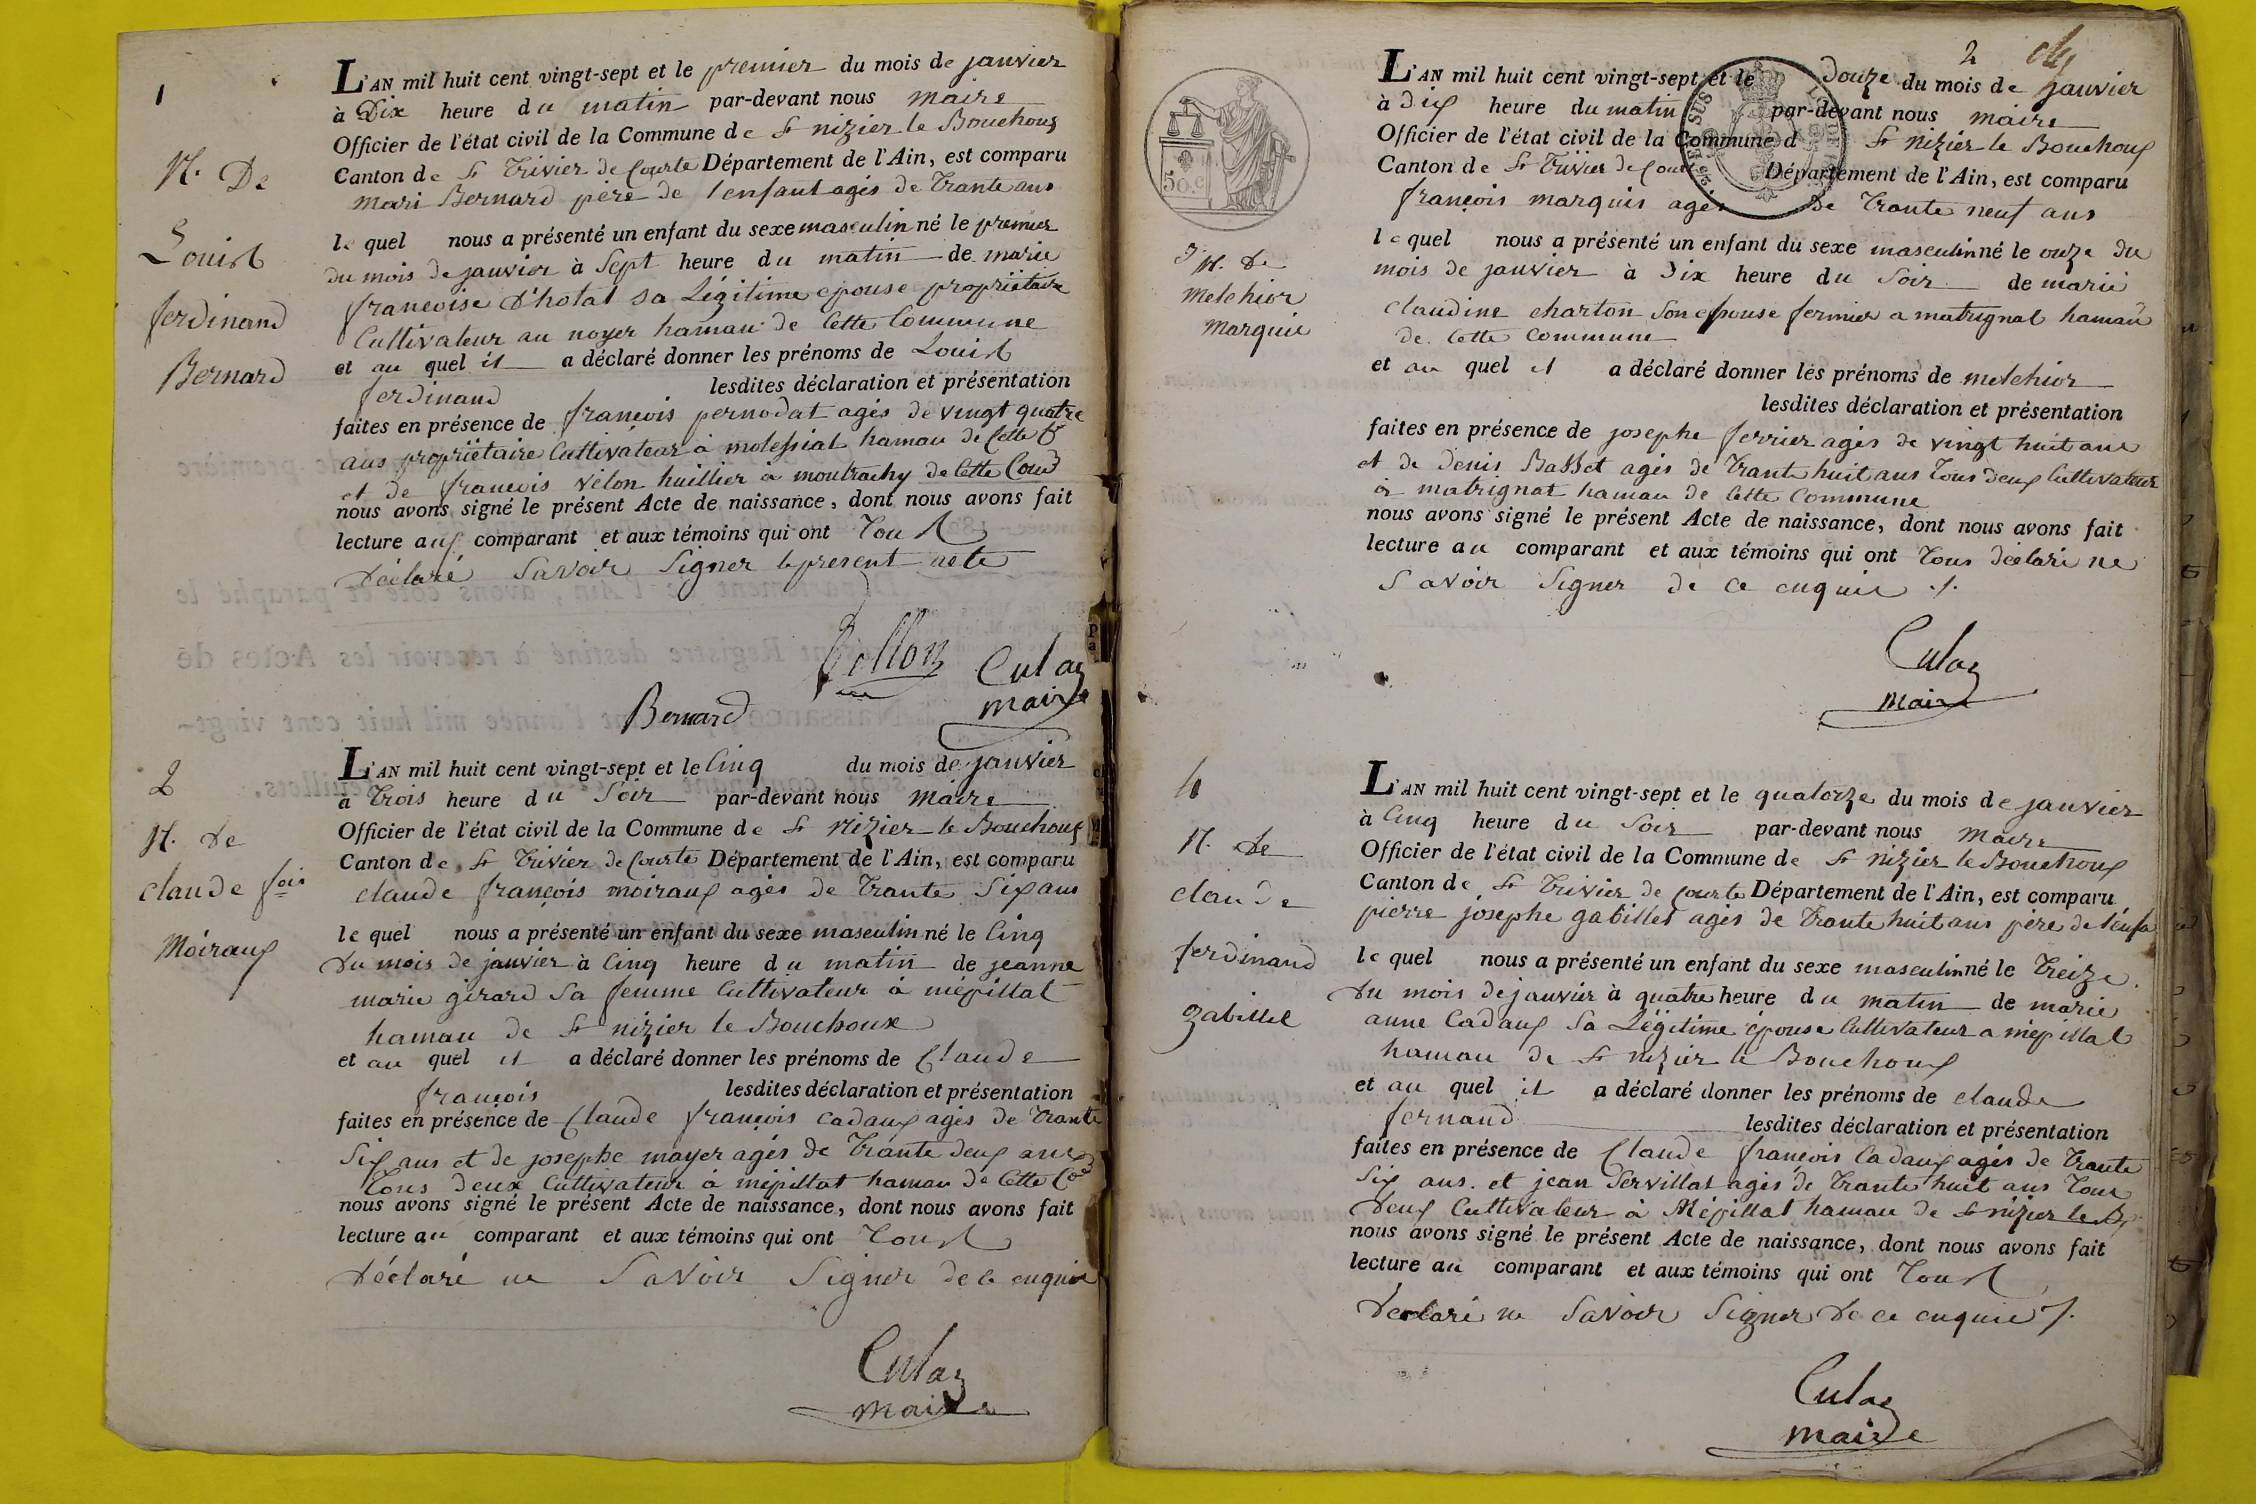 1
N. De
Louis
ferdinand
Bernard
L'AN mil huit cent vingt-sept et le premier du mois de janvier
à Dix heure du matin par-devant nous maire
Officier de l'état civil de la Commune de St nizier le Bouchoux
Canton de St Trivier de Courte Département de l'Ain, est comparu
mari Bernard père de l'enfant agés de Trante ans
le quel nous a présenté un enfant du sexe masculin né le premier
du mois de janvier à Sept heure du matin de marie
francoise D'hotal sa Légitime epouse propriétaire
Cultivateur au noyer hamau de Cette Commune
et au quel il a déclaré donner les prénoms de Louis
ferdinand lesdites déclaration et présentation
faites en présence de françois pernodat agés de vingt quatre
ans propriétaire Cultivateur à molessiat hamau de Cette
et de francois vélon huillier à montrachy de Cette
nous avons signé le présent Acte de naissance, dont nous avons fait
lecture aux comparant et aux témoins qui ont Tous
Déclaré Savoir Signer le present acte
Culaz
maire
Bernard
2
N. de
claude fois
Moiraux
L'AN mil huit cent vingt-sept et le Cinq du mois de janvier
à Trois heure du Soir par-devant nous maire
Officier de l'état civil de la Commune de St Nizier le Bouchoux
Canton de St Trivier de Courte Département de l'Ain, est comparu
claude françois moiraux agés de Trante Six ans
le quel nous a présenté un enfant du sexe masculin né le Cinq
du mois de janvier à Cinq heure du matin de jeanne
marie girard Sa femme Cultivateur à mépillat
hamau de St nizier le Bouchoux
et au quel il a déclaré donner les prénoms de Claude
françois lesdites déclaration et présentation
faites en présence de Claude françois cadaux agés de Trante
Six ans et de josephe mayer agés de Trante deux ans
Tous deux Cultivateur à mépillat hamau de Cette
nous avons signé le présent Acte de naissance, dont nous avons fait
lecture au comparant et aux témoins qui ont Tous
Déclaré ne Savoir Signer de ce enquie
Culaz
maire
2
50.c
3 N. de
Melchior
Marquie
L'AN mil huit cent vingt-sept et le Douze du mois de janvier
à dix heure du matin par-devant nous maire
Officier de l'état civil de la Commune d St nizier le Bouchoux
Canton de St Trivier de Cour Département de l'Ain, est comparu
françois marquis agés De Trante neuf ans
le quel nous a présenté un enfant du sexe masculin né le onze du
mois de janvier à Dix heure du Soir de marie
claudine charton Son epouse fermier a matrignat hamau
de Cette Commune
et au quel il a déclaré donner les prénoms de melchior
lesdites déclaration et présentation
faites en présence de josephe ferrier agés de vingt huit ans
et de Denis Basset agés de Trante huit ans Tous deux Cultivateur
à matrignat hamau de Cette Commune
nous avons signé le présent Acte de naissance, dont nous avons fait
lecture au comparant et aux témoins qui ont Tous déclaré ne
Savoir Signer de ce enquie ./.
Culaz
Maire
4
N. de
claude
ferdinand
gabillet
L'AN mil huit cent vingt-sept et le quatorze du mois de janvier
à Cinq heure du Soir par-devant nous Maire
Officier de l'état civil de la Commune de St nizier le Bouchoux
Canton de St Trivier de Courte Département de l'Ain, est comparu
pierre josephe gabillet agés de Trante huit ans père de l'enfa
le quel nous a présenté un enfant du sexe masculin né le Treize
du mois de janvier à quatre heure du matin de marie
anne Cadaux Sa Légitime épouse Cultivateur a mépillat
hamau de St nizier le Bouchoux
et au quel il a déclaré donner les prénoms de claude
fernand lesdites déclaration et présentation
faites en présence de Claude françois Cadaux agés de Trante
Six ans. et jean Servillat agés de Trante huit ans Tous
deux Cultivateur à Mépillat hamau de St nizier le B
nous avons signé le présent Acte de naissance, dont nous avons fait
lecture au comparant et aux témoins qui ont Tous
déclaré ne Savoir Signer de ce enquie ./.
Culaz
maire